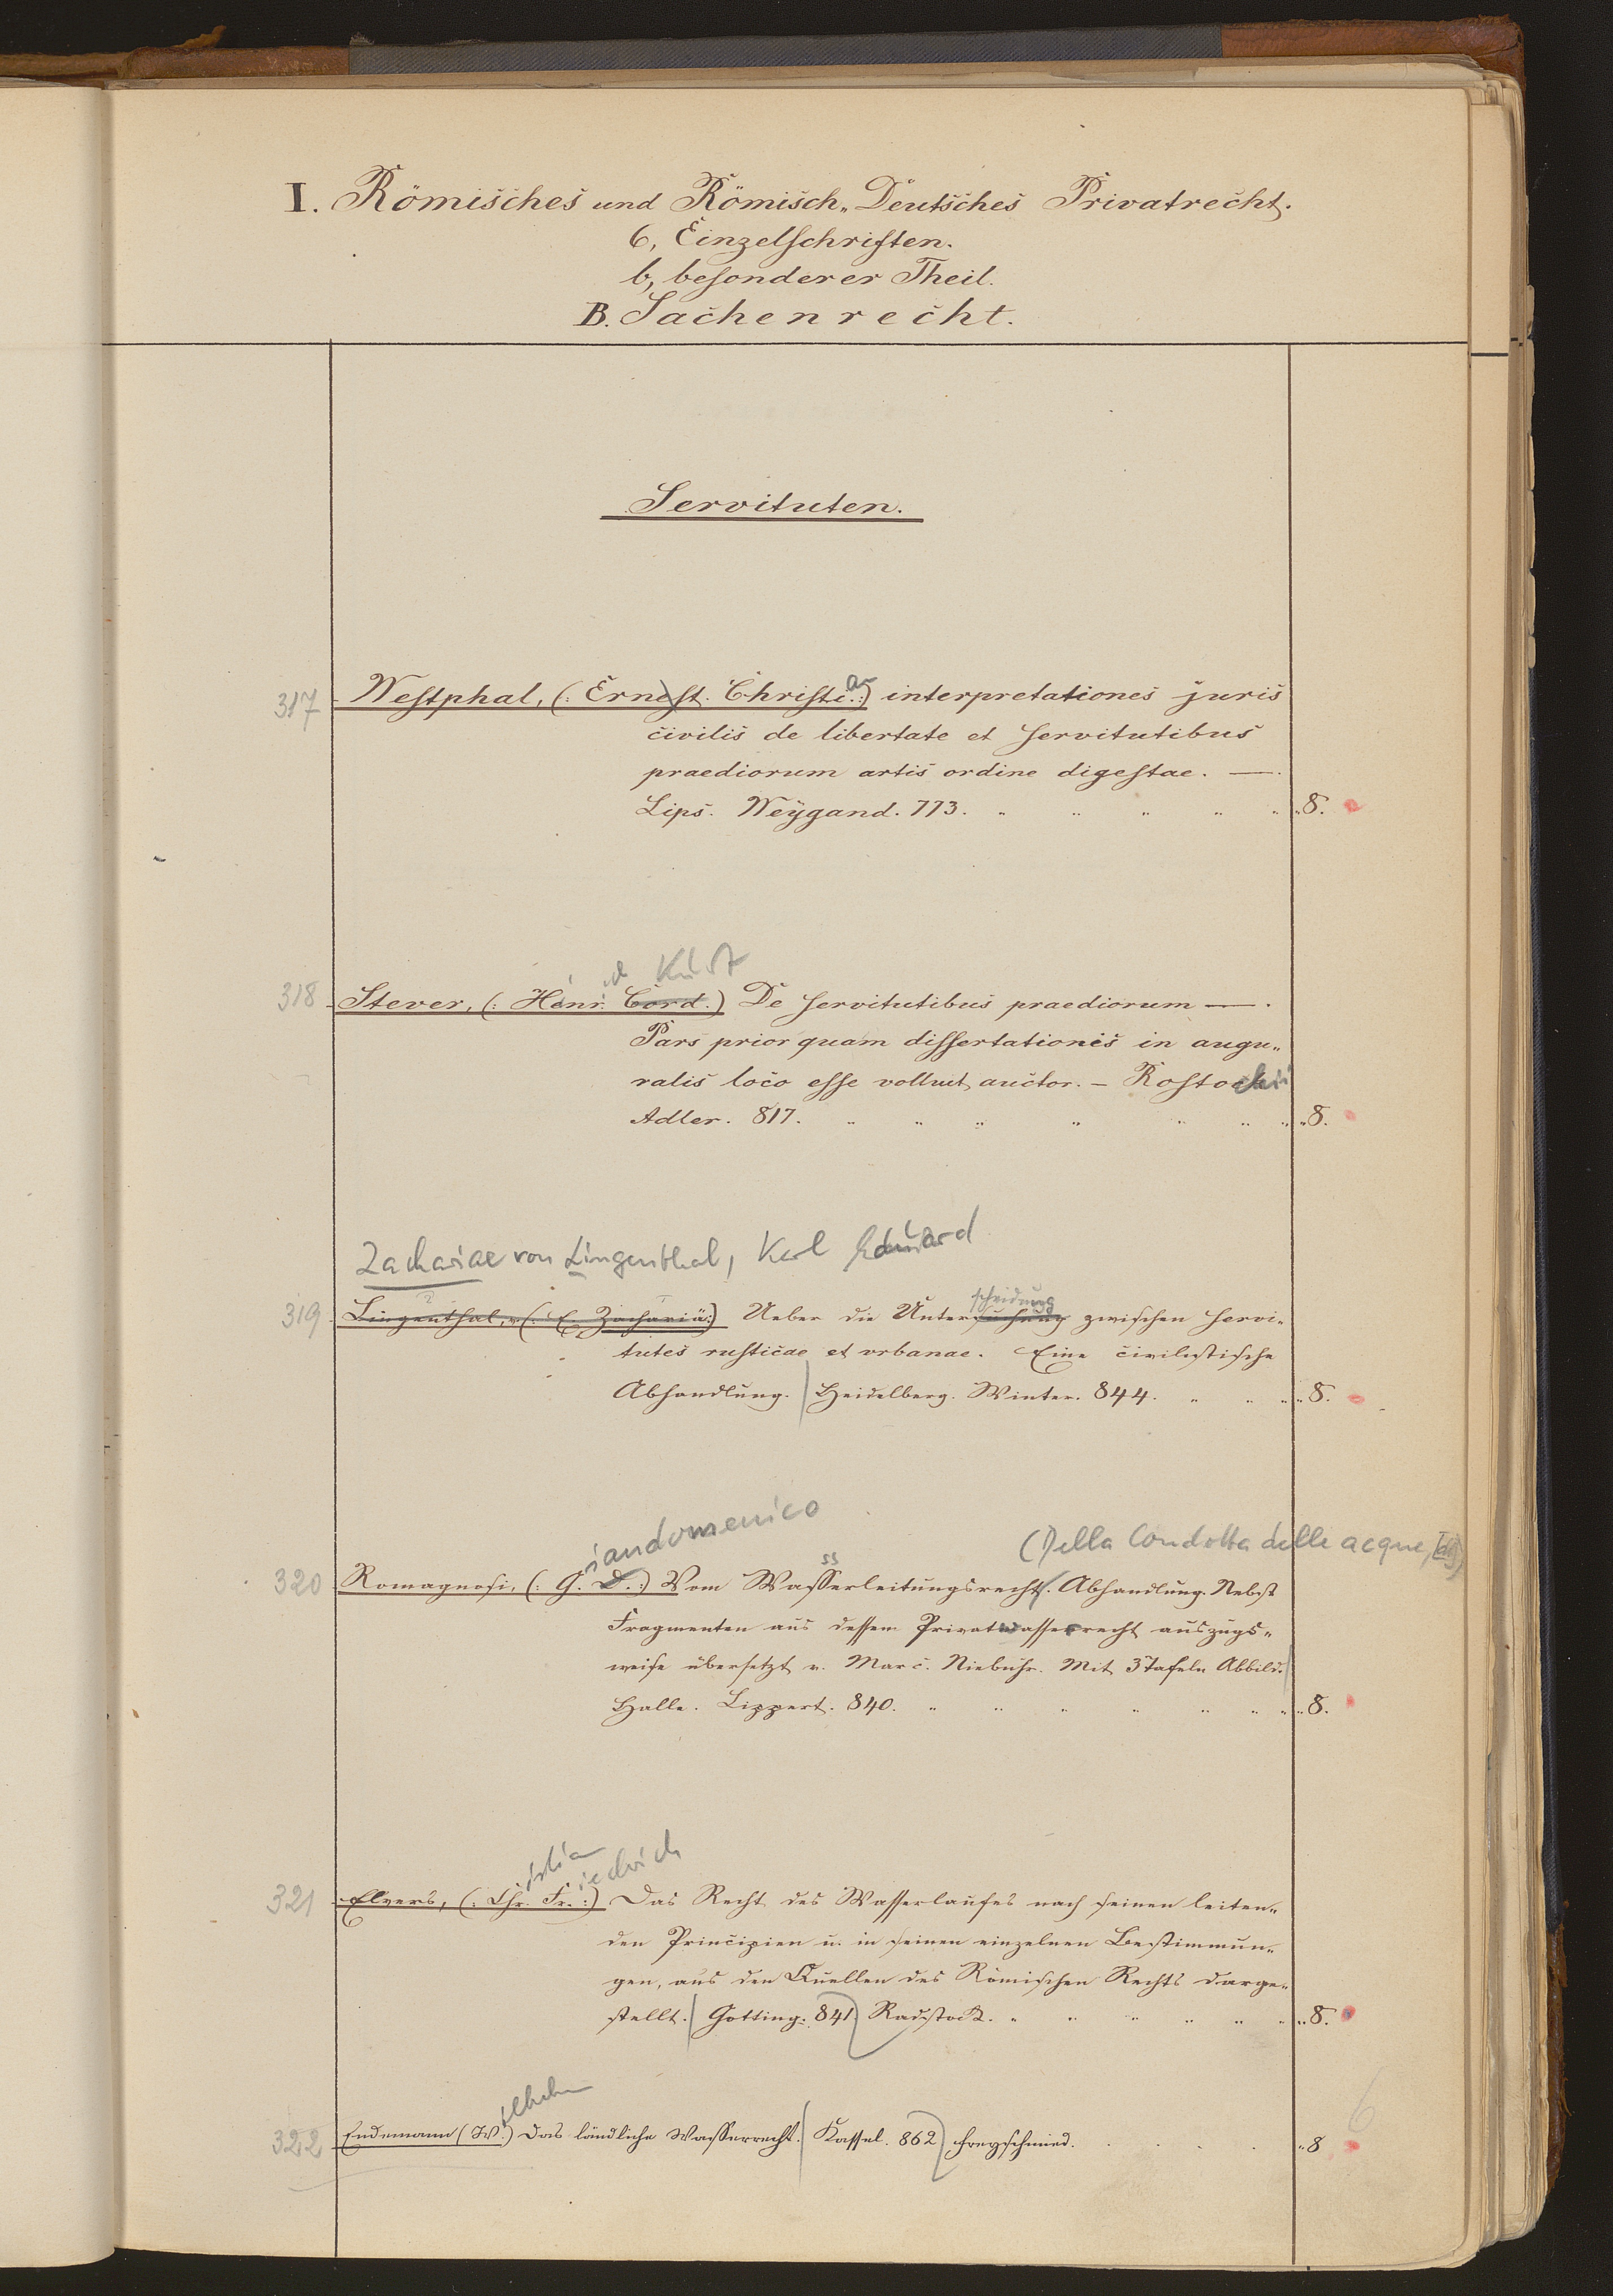 I. Römisches und Römisch„Deutsches Privatrecht.
6, Einzelschriften.
b, besonderer Theil.
B. Sachenrecht.
Servituten.
317 Westphal, (: Ernest. Christi:) an interpretationes juris
civilis de libertate et servitutibus
praediorum artis ordine digestae. —.
Lips. Weÿgand. 773. „8.
318 Stever, (: Henr. Cord.) De servitutibus praediorum —.
Pars prior quam dissertationis in augu„
ralis loco esse volluit auctor. – Rostochii
Adler. 817. „8.
Zachariae von Lingenthal, Karl Eduard
scheidung
319 Lingenthal, v. (: E. Zachariä:) Ueber die Untersuchung zwischen servi-
tutes rusticae et urbanae. Eine civilistische
Abhandlung. Heidelberg. Winter. 844. „8.
iandomenico (Della Condotta delle acque,
ss
320 Romagnosi, (: G. D.:) Vom Wasserleitungsrecht. Abhandlung. Nebst
Fragmenten aus dessem Privatwasserrecht auszugs„
weise übersetzt v. Marc. Niebuhr. Mit 3 Tafeln Abbild.
Halle. Lippert. 840. „8.
istian iedrich
321 Elvers, (: Chr. Fr.:) Das Recht des Wasserlaufes nach seinen leiten„
den Principien u. in seinen einzelnen Bestimmun„
gen, aus den Quellen des Römischen Rechts darge„
stellt. Gotting. 841. „8.
ilhelm 6
322 Endemann (W.) Das ländliche Wasserrecht. Kassel. 862 Freyschmied. „8